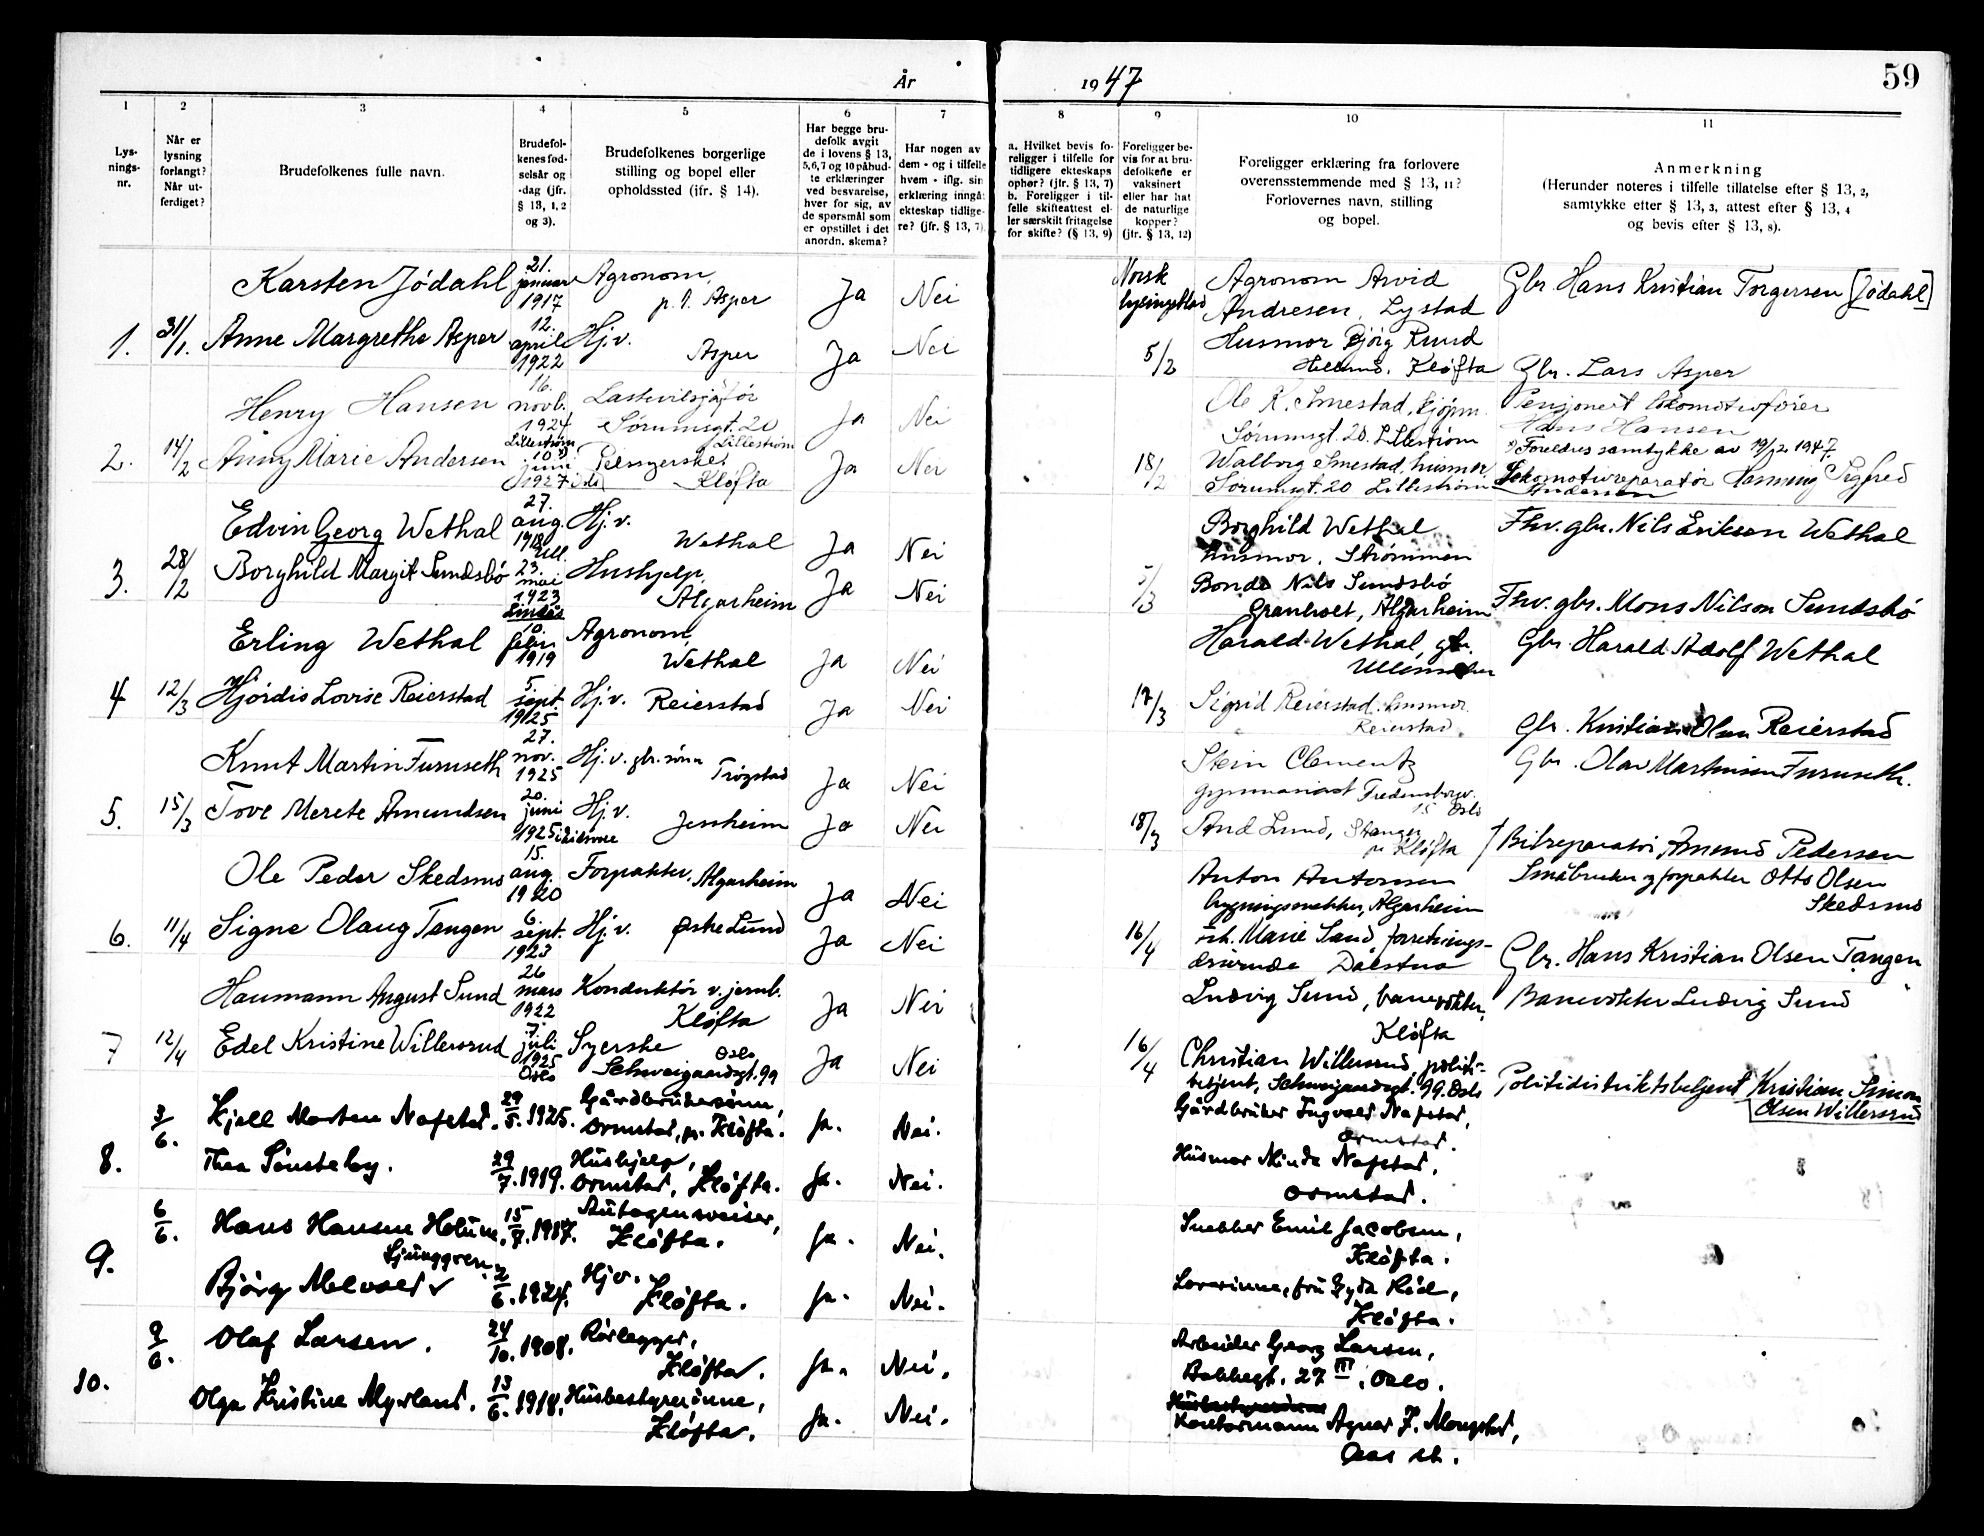 År 1947
59
1
2
3
4
5
6
7
8
9
10
11
Lys-
nings-
nr.
Når er
lysning
forlangt?
Når ut-
ferdiget?
Brudefolkenes fulle navn.
Brudefol-
kenes fød-
selsår og
-dag (jfr.
§ 13, 1, 2
og 3).
Brudefolkenes borgerlige
stilling og bopel eller
opholdssted (jfr. § 14).
Har begge bru-
defolk avgit
de i lovens § 13,
5, 6, 7 og 10 påbud-
te erklæringer
ved besvarelse,
hver for sig, av
de spørsmål som
er opstillet i det
anordn. skema?
Har nogen av
dem - og i tilfelle
hvem - iflg. sin
erklæring inngå
ekteskap tidlige-
re? (jfr. § 13, 7)
a. Hvilket bevis fo-
religger i tilfelle for
tidligere ekteskaps
ophør? (jfr. § 13, 7)
b. Foreligger i til-
felle skifteattest el-
ler særskilt fritagelse
for skifte? (§ 13, 9)
Foreligger be-
vis for at bru-
defolkene er
vaksinert
eller har hat
de naturlige
kopper?
(jfr. § 13, 12)
Foreligger erklæring fra forlovere
overensstemmende med § 13, 11?
Forlovernes navn, stilling
og bopel.
Anmerkning
(Herunder noteres i tilfelle tillatelse efter § 13, 2,
samtykke efter § 13, 3, attest efter § 13, 4
og bevis efter § 13, 8).
Karsten Jødahl 21. januar 1917 Agronom, p.t. Asper Ja Nei
Norsk lysingsblad
Agronom Arvid
Andresen, Lystad
Gbr. Hans Kristian Torgersen [Jødahl]
1. 31/1. Anne Margrethe Asper 12. april 1922 Hj.v. Asper Ja Nei
5/2
Husmor Bjørg Ruud
Kløfta
Gbr. Lars Asper
Henry Hansen 16. novb. 1924 Lillestrøm Lastebilsjåfør
Sørumsgt. 20 Lillestrøm Ja Nei
Ole K. Smestad, kjøpm.
Sørumsgt. 20. Lillestrøm
Pensjonert lokomotivfører
Hans Hansen
2. 14/2 Anny Marie Andersen 10. juni 1927 Pelssyerske, Kløfta Ja Nei
18/2
Walborg Smestad, husmor
Sørumsgt. 20 Lillestrøm
Foreldres samtykke av 19/12 1947.
Lokomotivreparatør Henning Sigfred
Andersen
Edvin Georg Wethal 27. aug. 1918 Ull. Hj.v. Wethal Ja Nei
Borghild Wethal
husmor, Strømmen
Fhv. gbr. Nils Eriksen Wethal
3. 28/2 Borghild Margit Sundsbö 23. mai 1923 Lindås Hushjelp, Algarheim Ja Nei
5/3
Bonde Nils Sundsbö
Granholt, Algarheim
Fhv. gbr. Mons Nilson Sundsbö
Erling Wethal 10. febr. 1919 Agronom, Wethal Ja Nei
Harald Wethal, gbr.
Ullensaker
Gbr. Harald Adolf Wethal
4 12/3 Hjørdis Lovise Reierstad 5. sept. 1925. Hj.v. Reierstad Ja Nei
17/3
Sigrid Reierstad, husmor
Reierstad
Gbr. Kristian Olsen Reierstad
Knut Martin Furuseth 27. nov. 1925 Hj.v. gbr. sønn Trøgstad Ja Nei
Stein Clementz
gymnasiast Fredensborgv.
15 Oslo
Gbr. Olav Martinsen Furuseth.
5. 15/3 Tove Merete Amundsen 20. juni 1925 Hj.v. Jessheim Ja Nei
18/3
Lund, Stanger
pr Kløfta
Bilreparatør Amund Pedersen
Ole Peder Skedsmo 15. aug. 1920 Forpakter, Algarheim Ja Nei
Anton Antonsen
bygningssnekker, Algarheim
Småbruker og forpakter Otto Olsen
Skedsmo
6. 11/4 Signe Olaug Tangen 6. sept. 1923 Hj.v. Østre Lund Ja Nei
16/4
Frk. Marie Sand, forretnings-
drivende Dalstua
Gbr. Hans Kristian Olsen Tangen
Haumann August Sund 26 mars 1922 Konduktör v. jernb. Kløfta Ja Nei
Ludvig Sund, banevokter,
Kløfta
Banevokter Ludvig Sund
7 12/4 Edel Kristine Willersrud 7. juli 1925 Oslo Syerske Oslo
Schweigaardsgt. 99 Ja Nei
16/4
Christian Willersrud politi-
betjent, Schweigaardsgt. 99. Oslo
Politidistriktsbetjent Kristian Simon
Olsen Willersrud
3/6. Kjell Morten Nafstad. 29/5. 1925. Gårdbrukersønn,
Ormstad, pr. Kløfta. Ja. Nei.
Gårdbruker Ingvald Nafstad,
Ormstad.
8. Thea Sönsteby. 29/7. 1919. Hushjelp,
Ormstad, Kløfta. Ja. Nei.
Husmor Minda Nafstad,
Ormstad.
6/6. Hans Hansen Holum. 15/7. 1917. Autogensveiser,
Kløfta. Ja. Nei.
Snekker Emil Jacobsen,
Kløfta.
9. Ljunggren
Bjørg Melvold 2/6. 1924. Hjv.
Kløfta. Ja. Nei.
Lærerinne, fru Gyda Röd,
Kløfta.
9/6. Olaf Larsen. 24/10. 1908. Rörlegger,
Kløfta. Ja. Nei.
Arbeider Georg Larsen,
27 III, Oslo.
10. Olga Kristine Myrland. 13/6. 1918. Husbestyrerinne,
Kløfta. Ja. Nei.
Kontormann Agnar F.